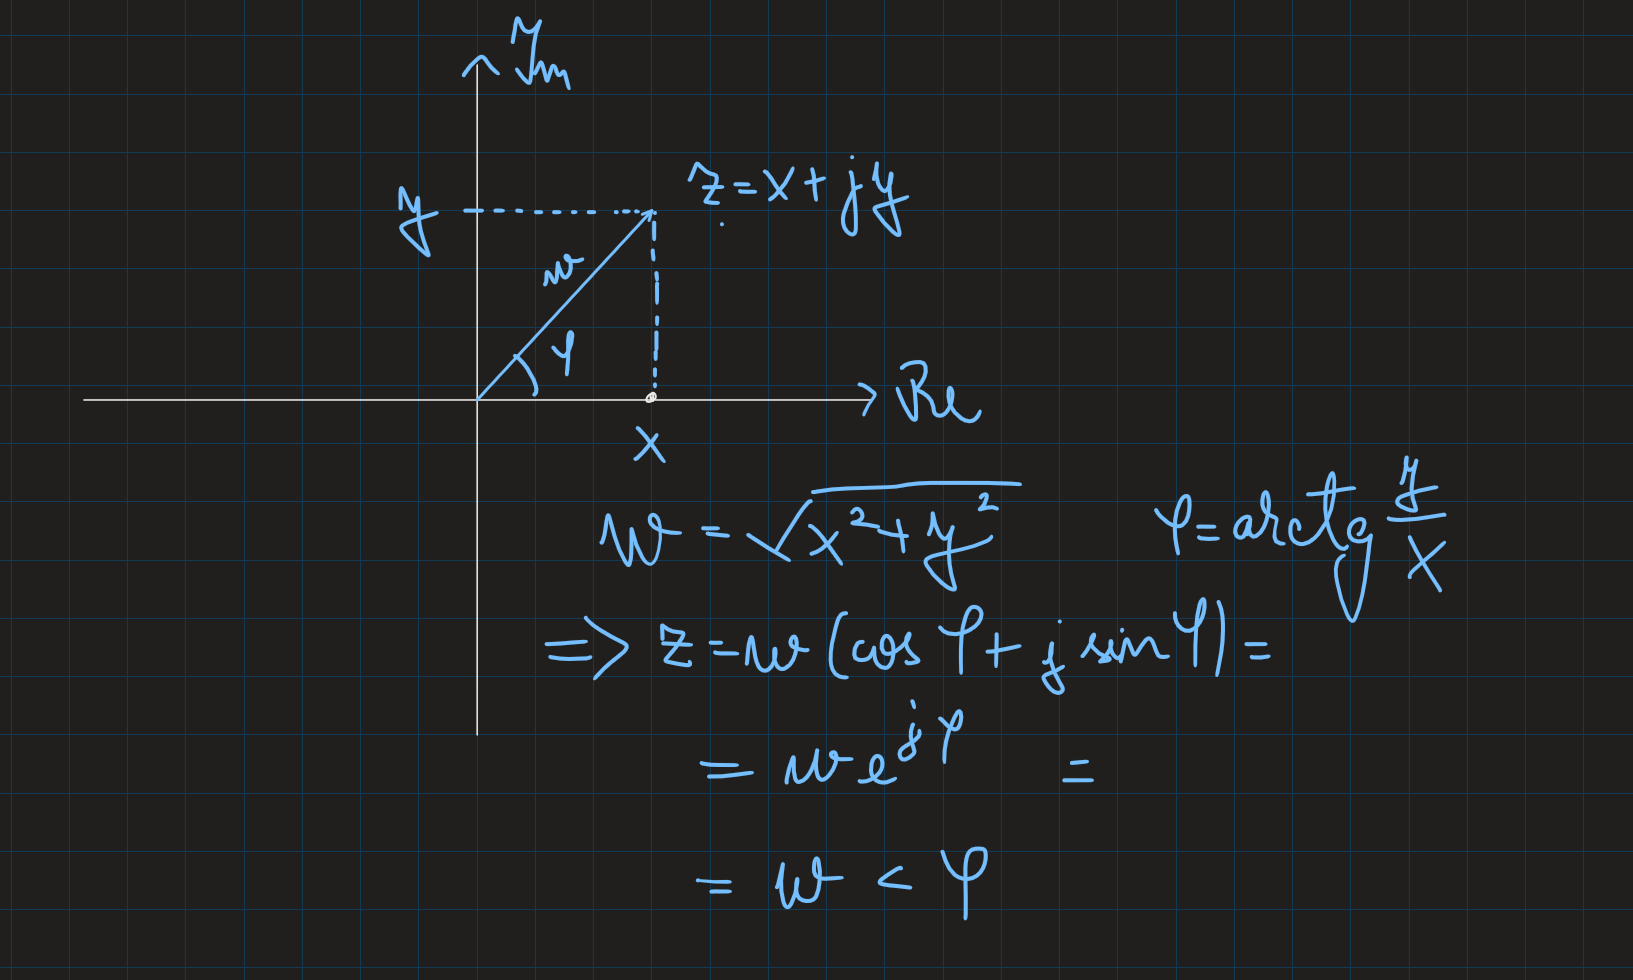 Im
z = x + jy
y
w
φ
Re
x
w = √(x² + y²) φ = arctg y/x
=> z = w (cos φ + j sin φ) =
= w e^{jφ} =
= w < φ